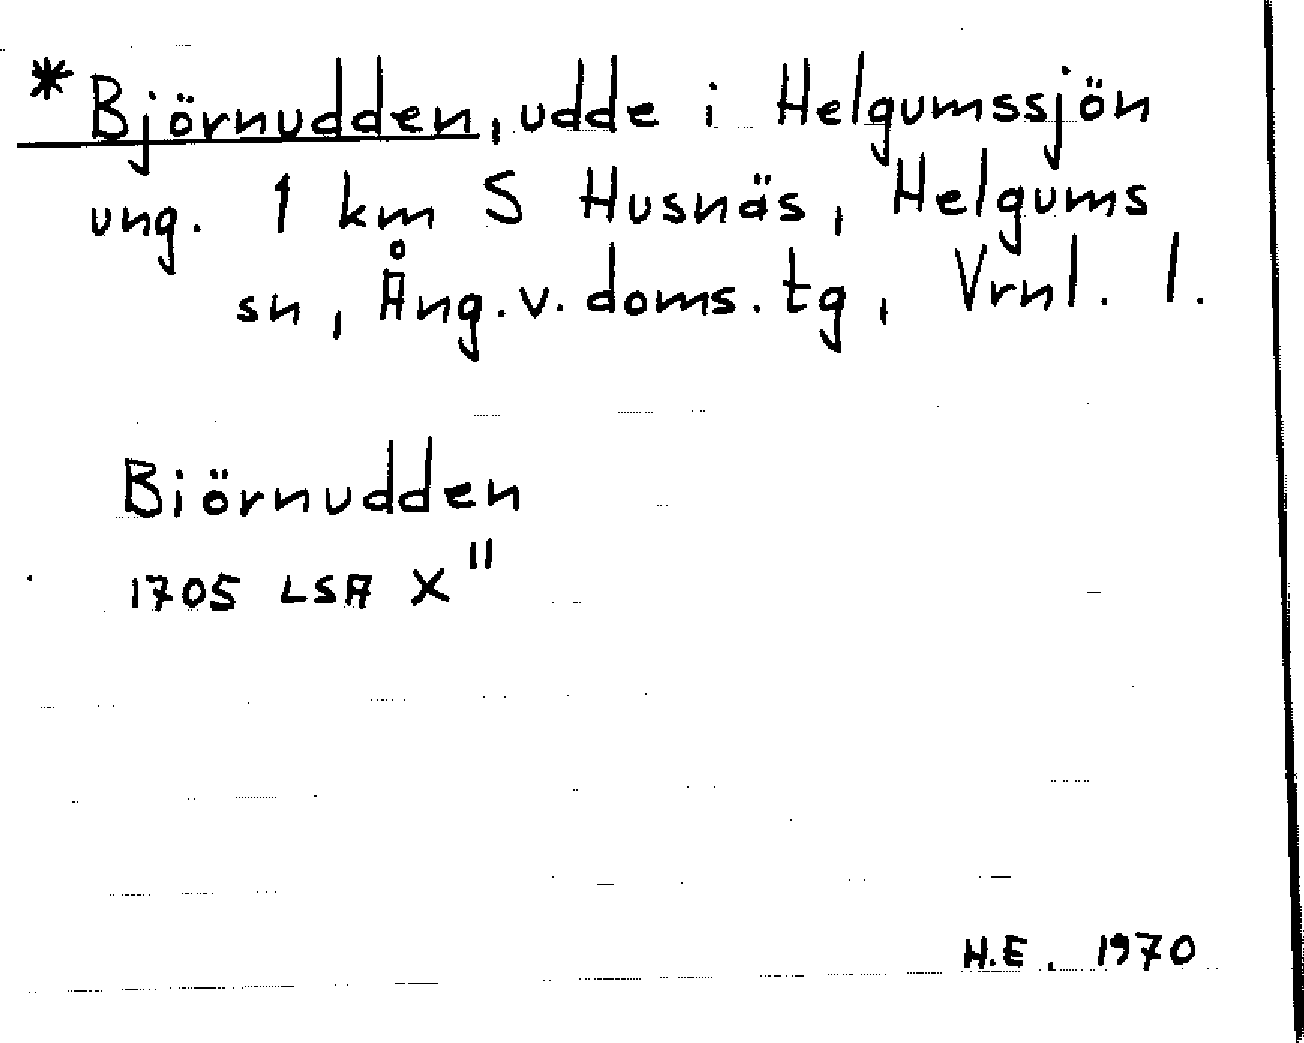 * Björnudden, udde i Helgumssjön
ung. 1 km S Husnäs, Helgums
sn, Ång.v. doms. tg, Vrnl. l.
Biörnudden
1705 LSA X"
H.E. 1970